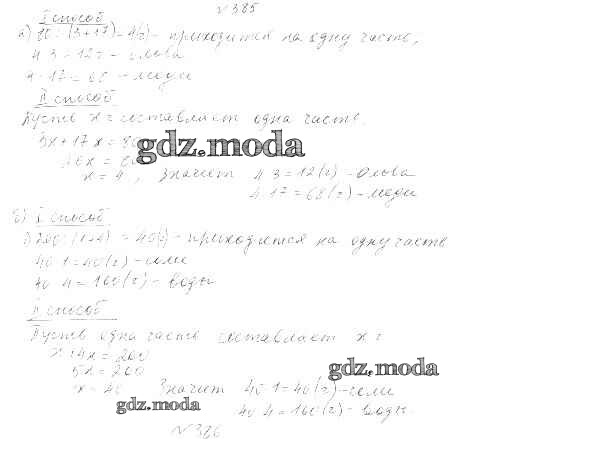 №385
I способ
а) 80 : (3+17) = 4(г) - приходится на одну часть.
4·3 = 12 г - олова
4·17 = 68 - меди
II способ
Пусть х г составляет одна часть.
3х + 17х = 80
gdz.moda
20х = 80
х = 4, значит 4·3 = 12(г) - олова
4·17 = 68(г) - меди
б) I способ
1) 200 : (1+4) = 40(г) - приходится на одну часть
40·1 = 40(г) - соли
40·4 = 160(г) - воды
II способ
Пусть одна часть составляет х г
х + 4х = 200
5х = 200
gdz.moda
х = 40 Значит 40·1 = 40(г) - соли
gdz.moda
40·4 = 160(г) - воды.
№386